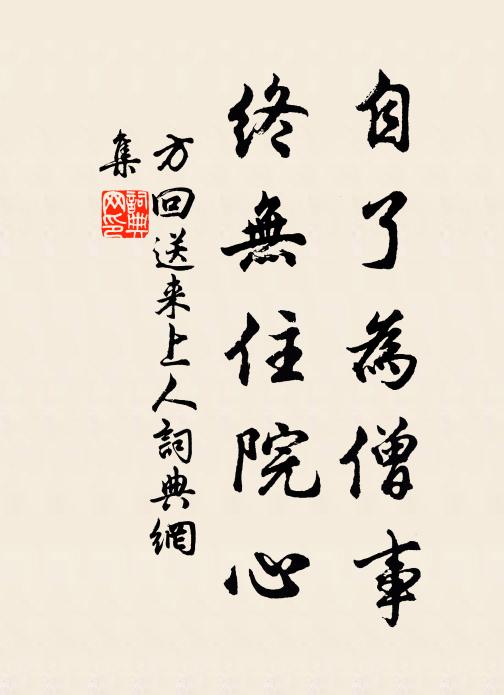 自了為僧事
終無住院心
方回送来上人詞典網
集
詞典網印